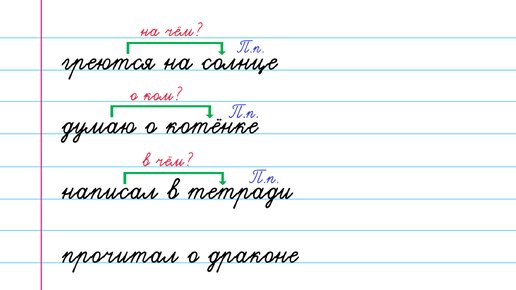 на чём?
П.п.
греются на солнце
о ком?
П.п.
думаю о котёнке
в чём?
П.п.
написал в тетради
прочитал о драконе